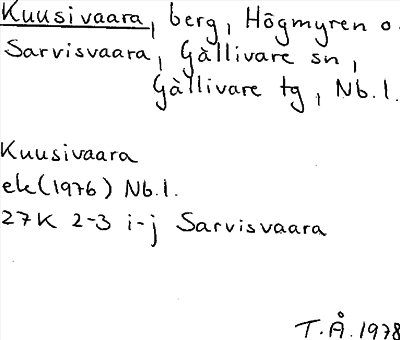 Kuusivaara, berg, Högmyren o.
Sarvisvaara, Gällivare sn,
Gällivare tg, Nb.l.
Kuusivaara
ek(1976) Nb.l.
27K 2-3 i-j Sarvisvaara
T.Å.1978